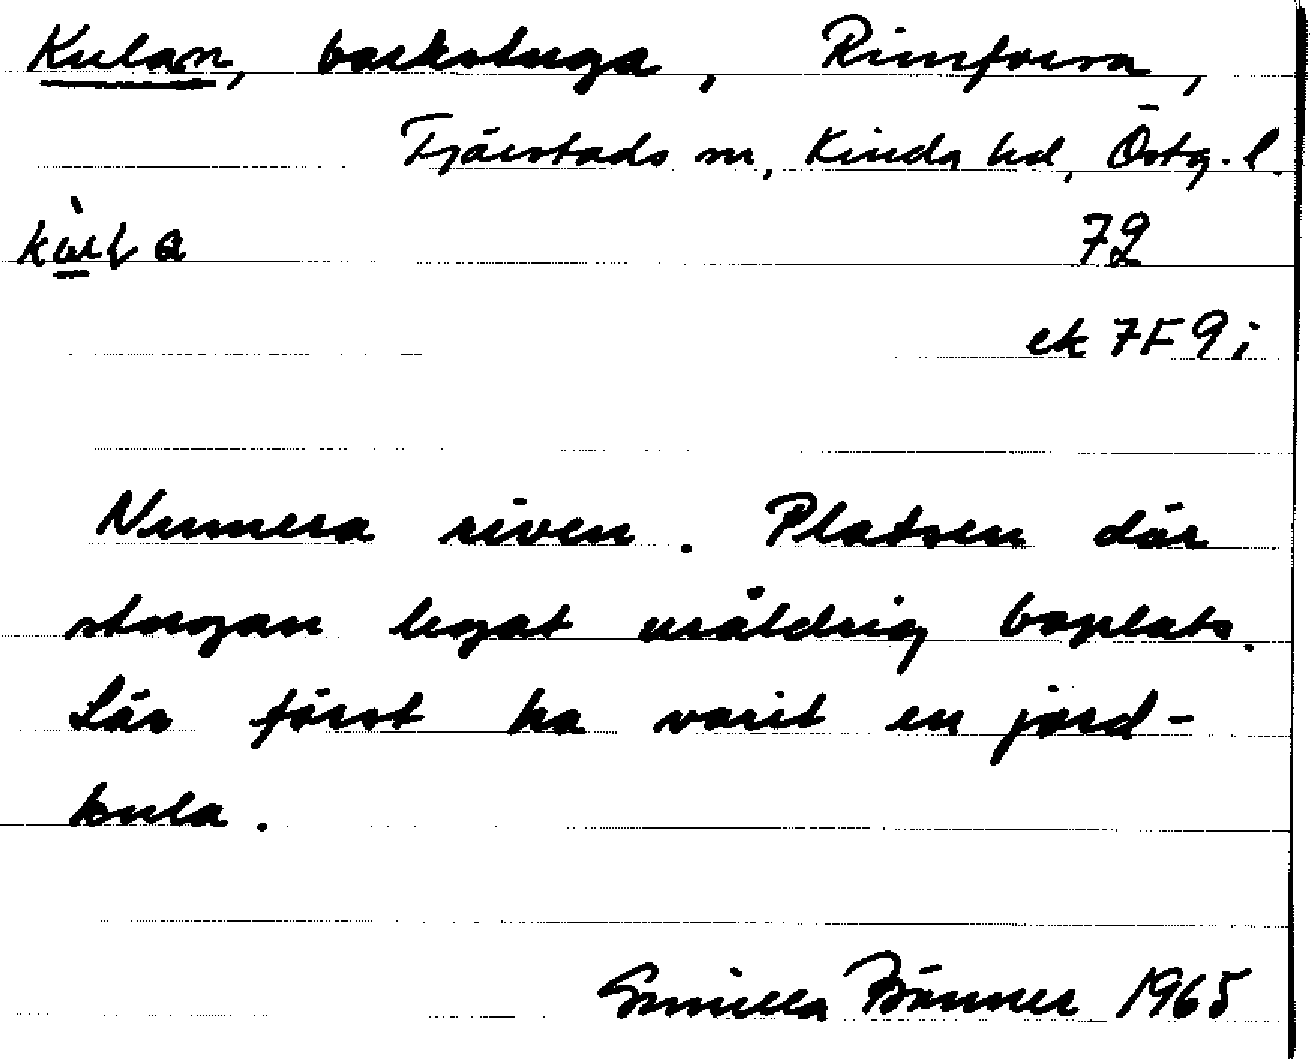 Kulan, backstuga, Rimforsa,
Tjärstads sn, Kinda hd, Östg. l.
72
ek 7F 9i
Numera riven. Platsen där
stugan legat uråldrig boplats.
Lär först ha varit en jord-
kula.
Gunilla Bänner 1965